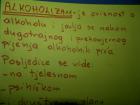 ALKOHOLIZAM - je ovisnost o
alkoholu i javlja se nakon
dugotrajnog i prekomjernog
pijenja alkoholnih pića
Posljedice se vide:
- na tjelesnom
- psihičkom